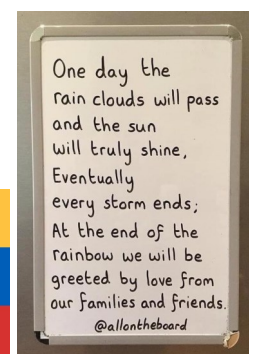 One day the
rain clouds will pass
and the sun
will truly shine,
Eventually
every storm ends;
At the end of the
rainbow we will be
greeted by love from
our families and friends.
@allontheboard